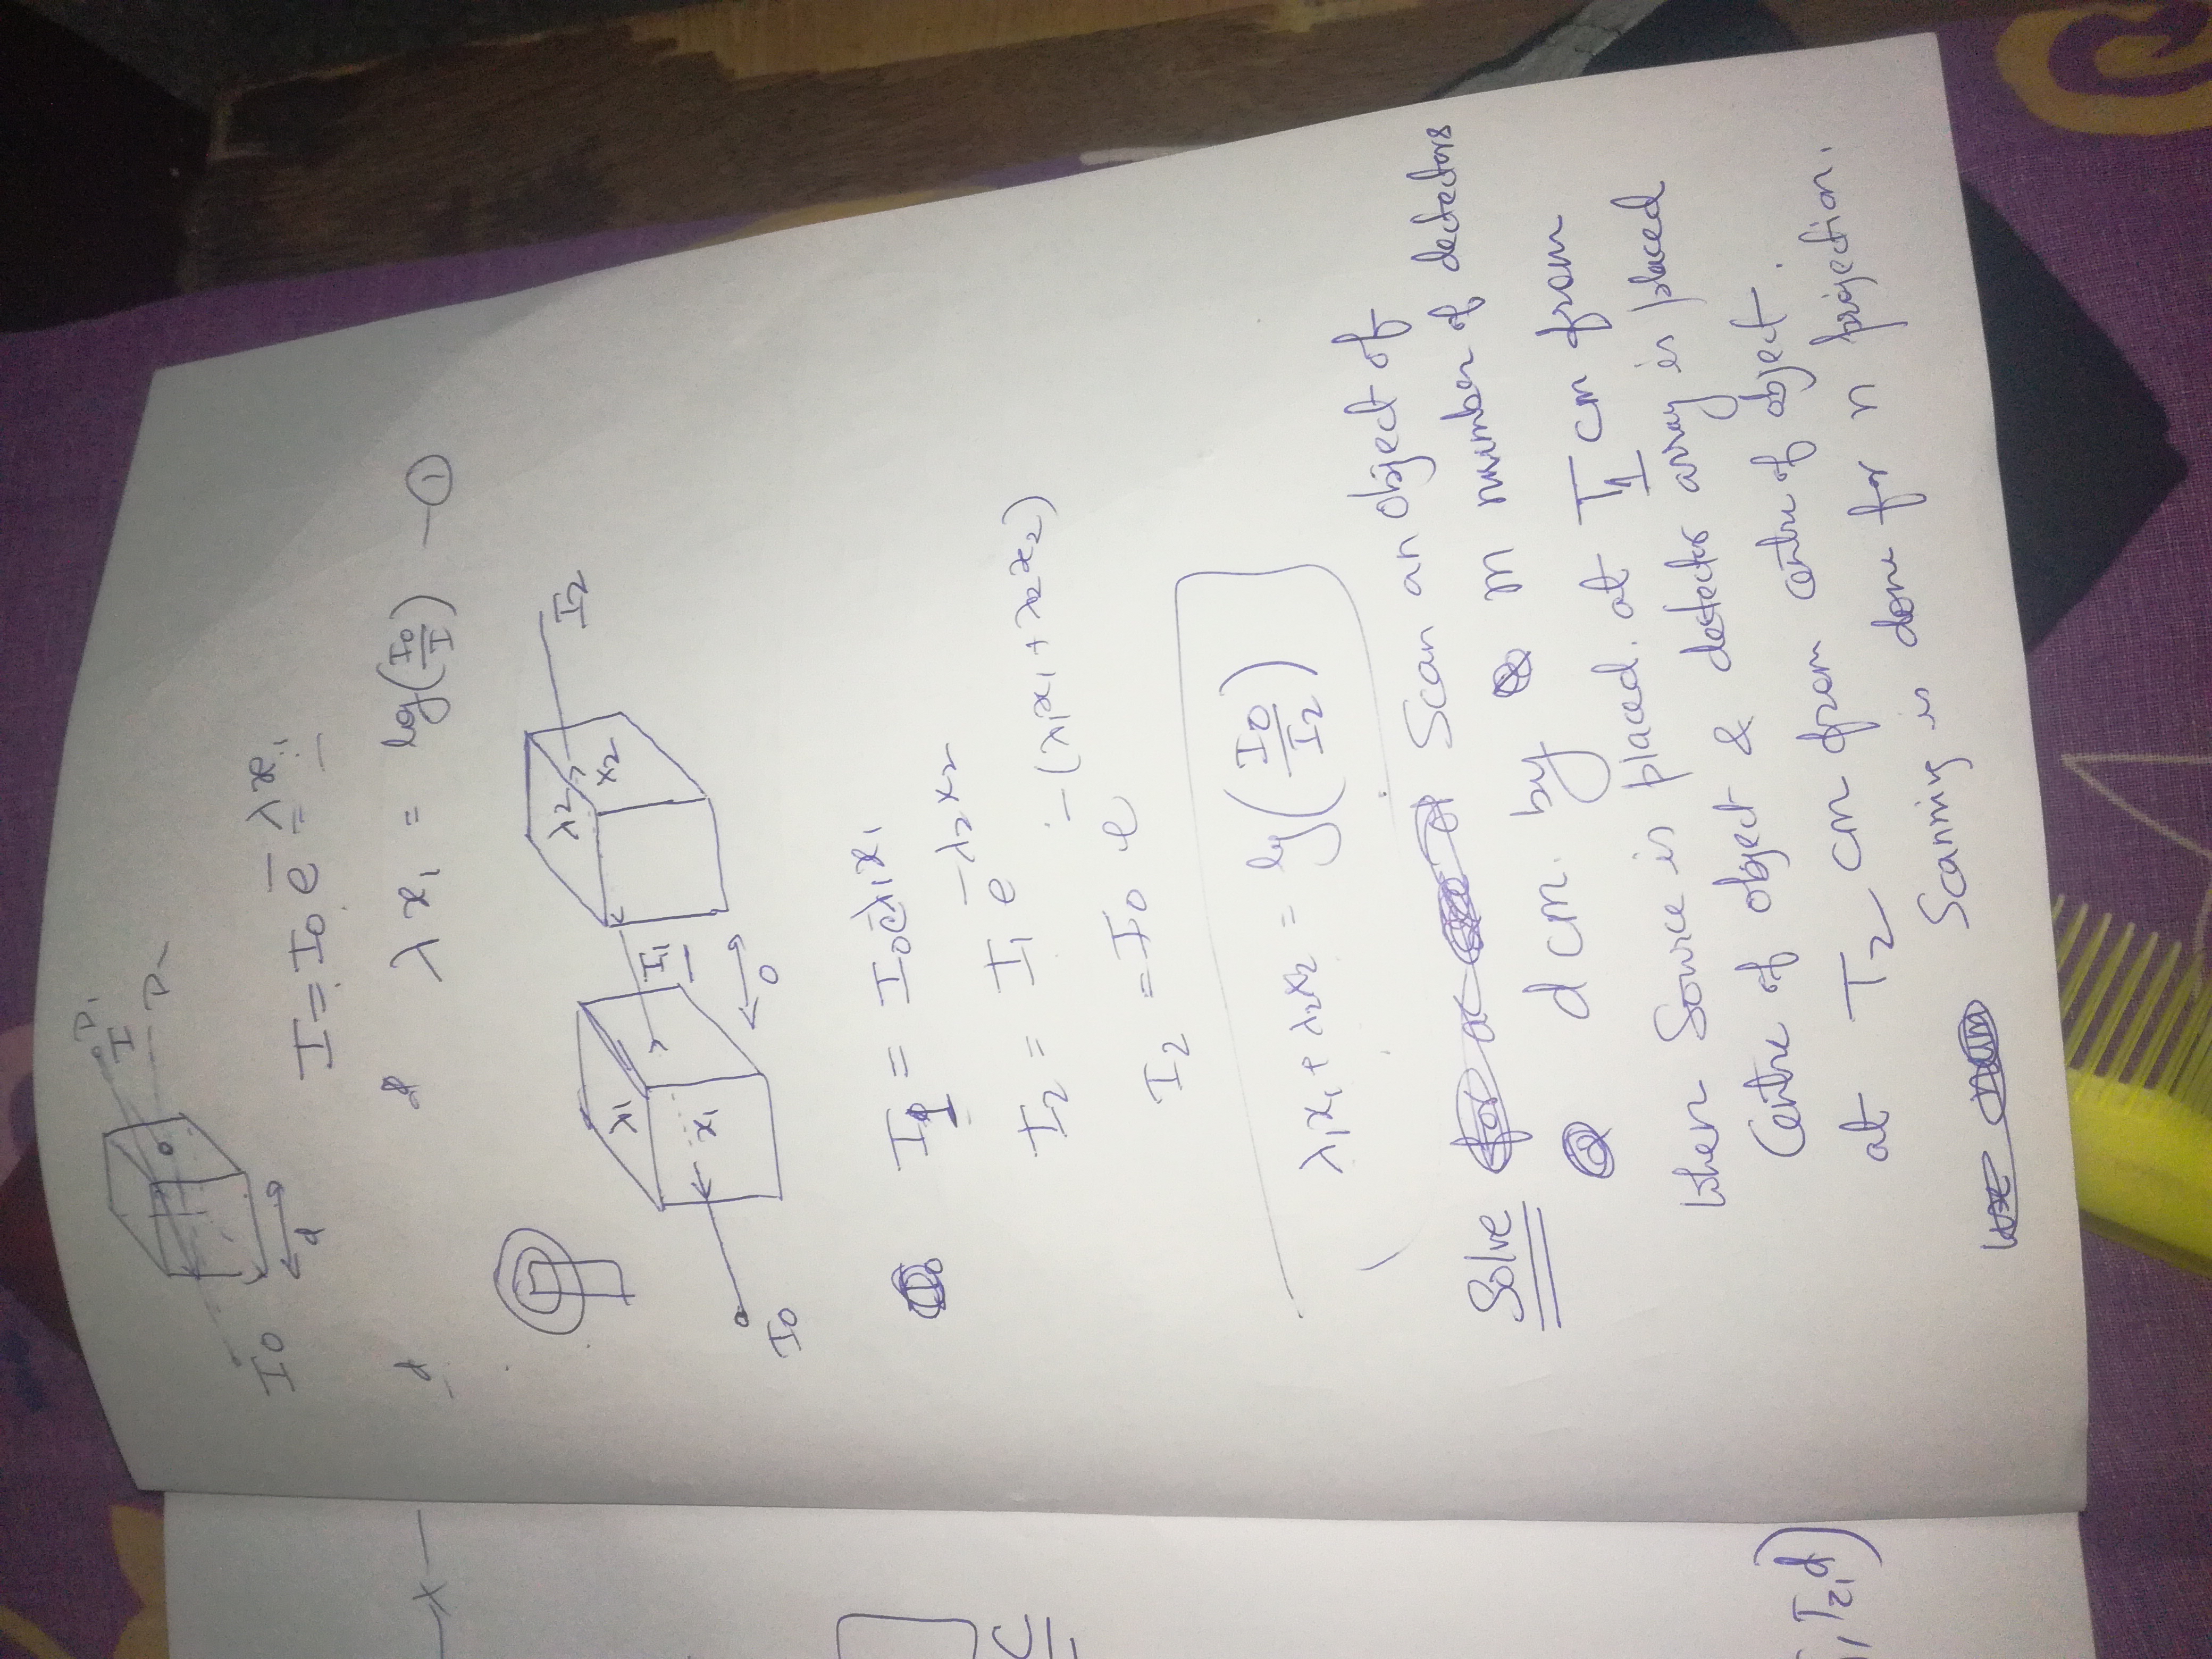 D1
I
D2
I0
d
I = I0 e^-λx1
λx1 = log(I0/I) - ①
λ2
x2
I2
λ1
I1
x1
0
I0
I1 = I0 e^-λ1x1
I2 = I1 e^-λ2x2
I2 = I0 e^-(λ1x1 + λ2x2)
λ1x1 + λ2x2 = log(I0/I2)
Solve Scan an object of
d cm. by m number of dectectors
when Source is placed. at T1 cm from
Centre of object & dectector array is placed
at T2 cm from centre of object.
Scanning is done for n projection.
C
, T2, d)